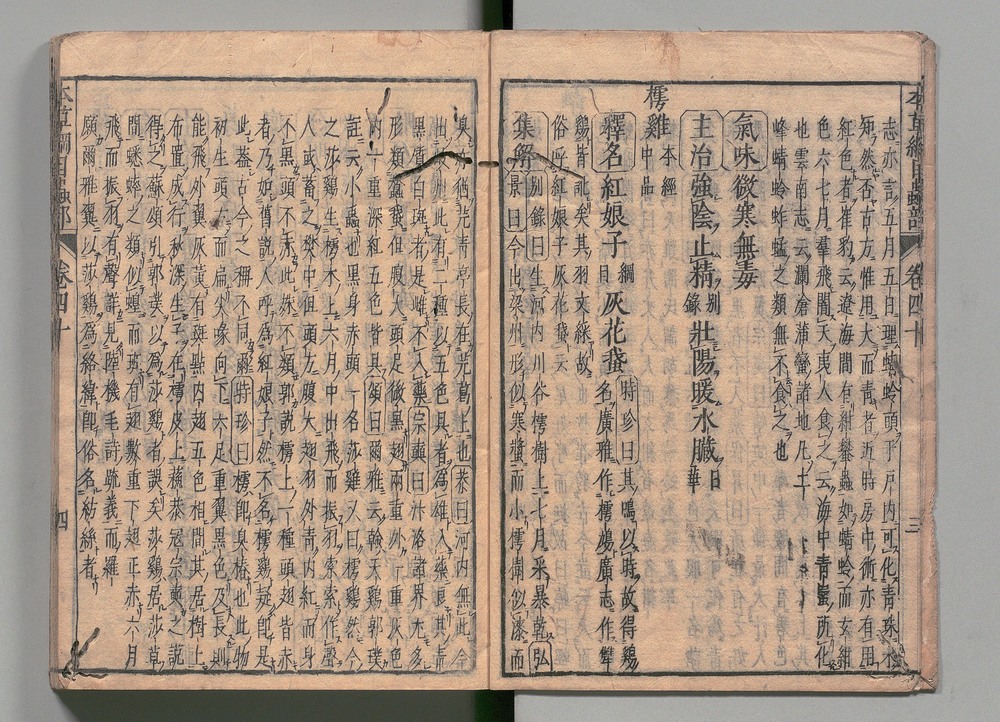 本草綱目蟲部
卷四十
三
志亦言五月五日理蜻蛉頭于戶内可化青珠未
知然否古方惟用大而青者近時房中術亦有用
紅色者崔豹云遼海間有紺蠜蟲如蜻蛉而玄紺
色六七月羣飛闇天夷人食之云海中青蝦所化
也雲南志云瀾滄蒲蠻諸地凡土
蜂蜻蛉蚱蜢之類無不食之也
氣味微寒無毒
主治強陰止精別錄壯陽暖水臟日華
樗雞本經中品
釋名紅娘子綱目灰花蛾時珍曰其鳴以時故得鷄
名廣雅作樗鳩廣志作犨
鷄皆訛矣其羽文綵故
俗呼紅娘子灰花蛾云
集解別錄曰生河内川谷樗樹上七月采暴乾弘
景曰今出梁州形似寒螿而小樗樹似漆而
臭亦猶芫青亭長在芫葛上也恭曰河内無此今
出岐州此有二種以五色具者爲雄入藥良其青
黑質白斑者是雌不入藥宗奭曰汴洛諸界尤多
形類蠶蛾但腹大頭足微黑翅兩重外一重灰色
内一重深紅五色皆具頌曰爾雅云螒天鷄郭璞
註云小蟲也黑身赤頭一名莎鷄又曰樗鷄然今
之莎鷄生樗木上六月中出飛而振羽索索作聲
人或蓄之樊中但頭方腹大翅羽外青内紅而身
不黑頭不赤此殊不類郭説樗上一種頭翅皆赤
者乃如舊説人呼爲紅娘子然不名樗鷄疑即是
此蓋古今之稱不同爾時珍曰樗即臭椿也此物
初生頭方而扁尖喙向下六足重翼黑色及長則
能飛外翼灰黄有斑點内翅五色相間其居樹上
布置成行秋深生子在樗皮上蘇恭冠宗奭之説
得之蘇頌引郭璞以爲莎鷄者誤矣莎鷄居莎草
間蟋蟀之類似蝗而斑有翅數重下翅正赤六月
飛而振羽有聲詳見陸機毛詩疏義而羅
願爾雅翼以莎鷄爲絡緯即俗名紡絲者
本草綱目蟲部
卷四十
四